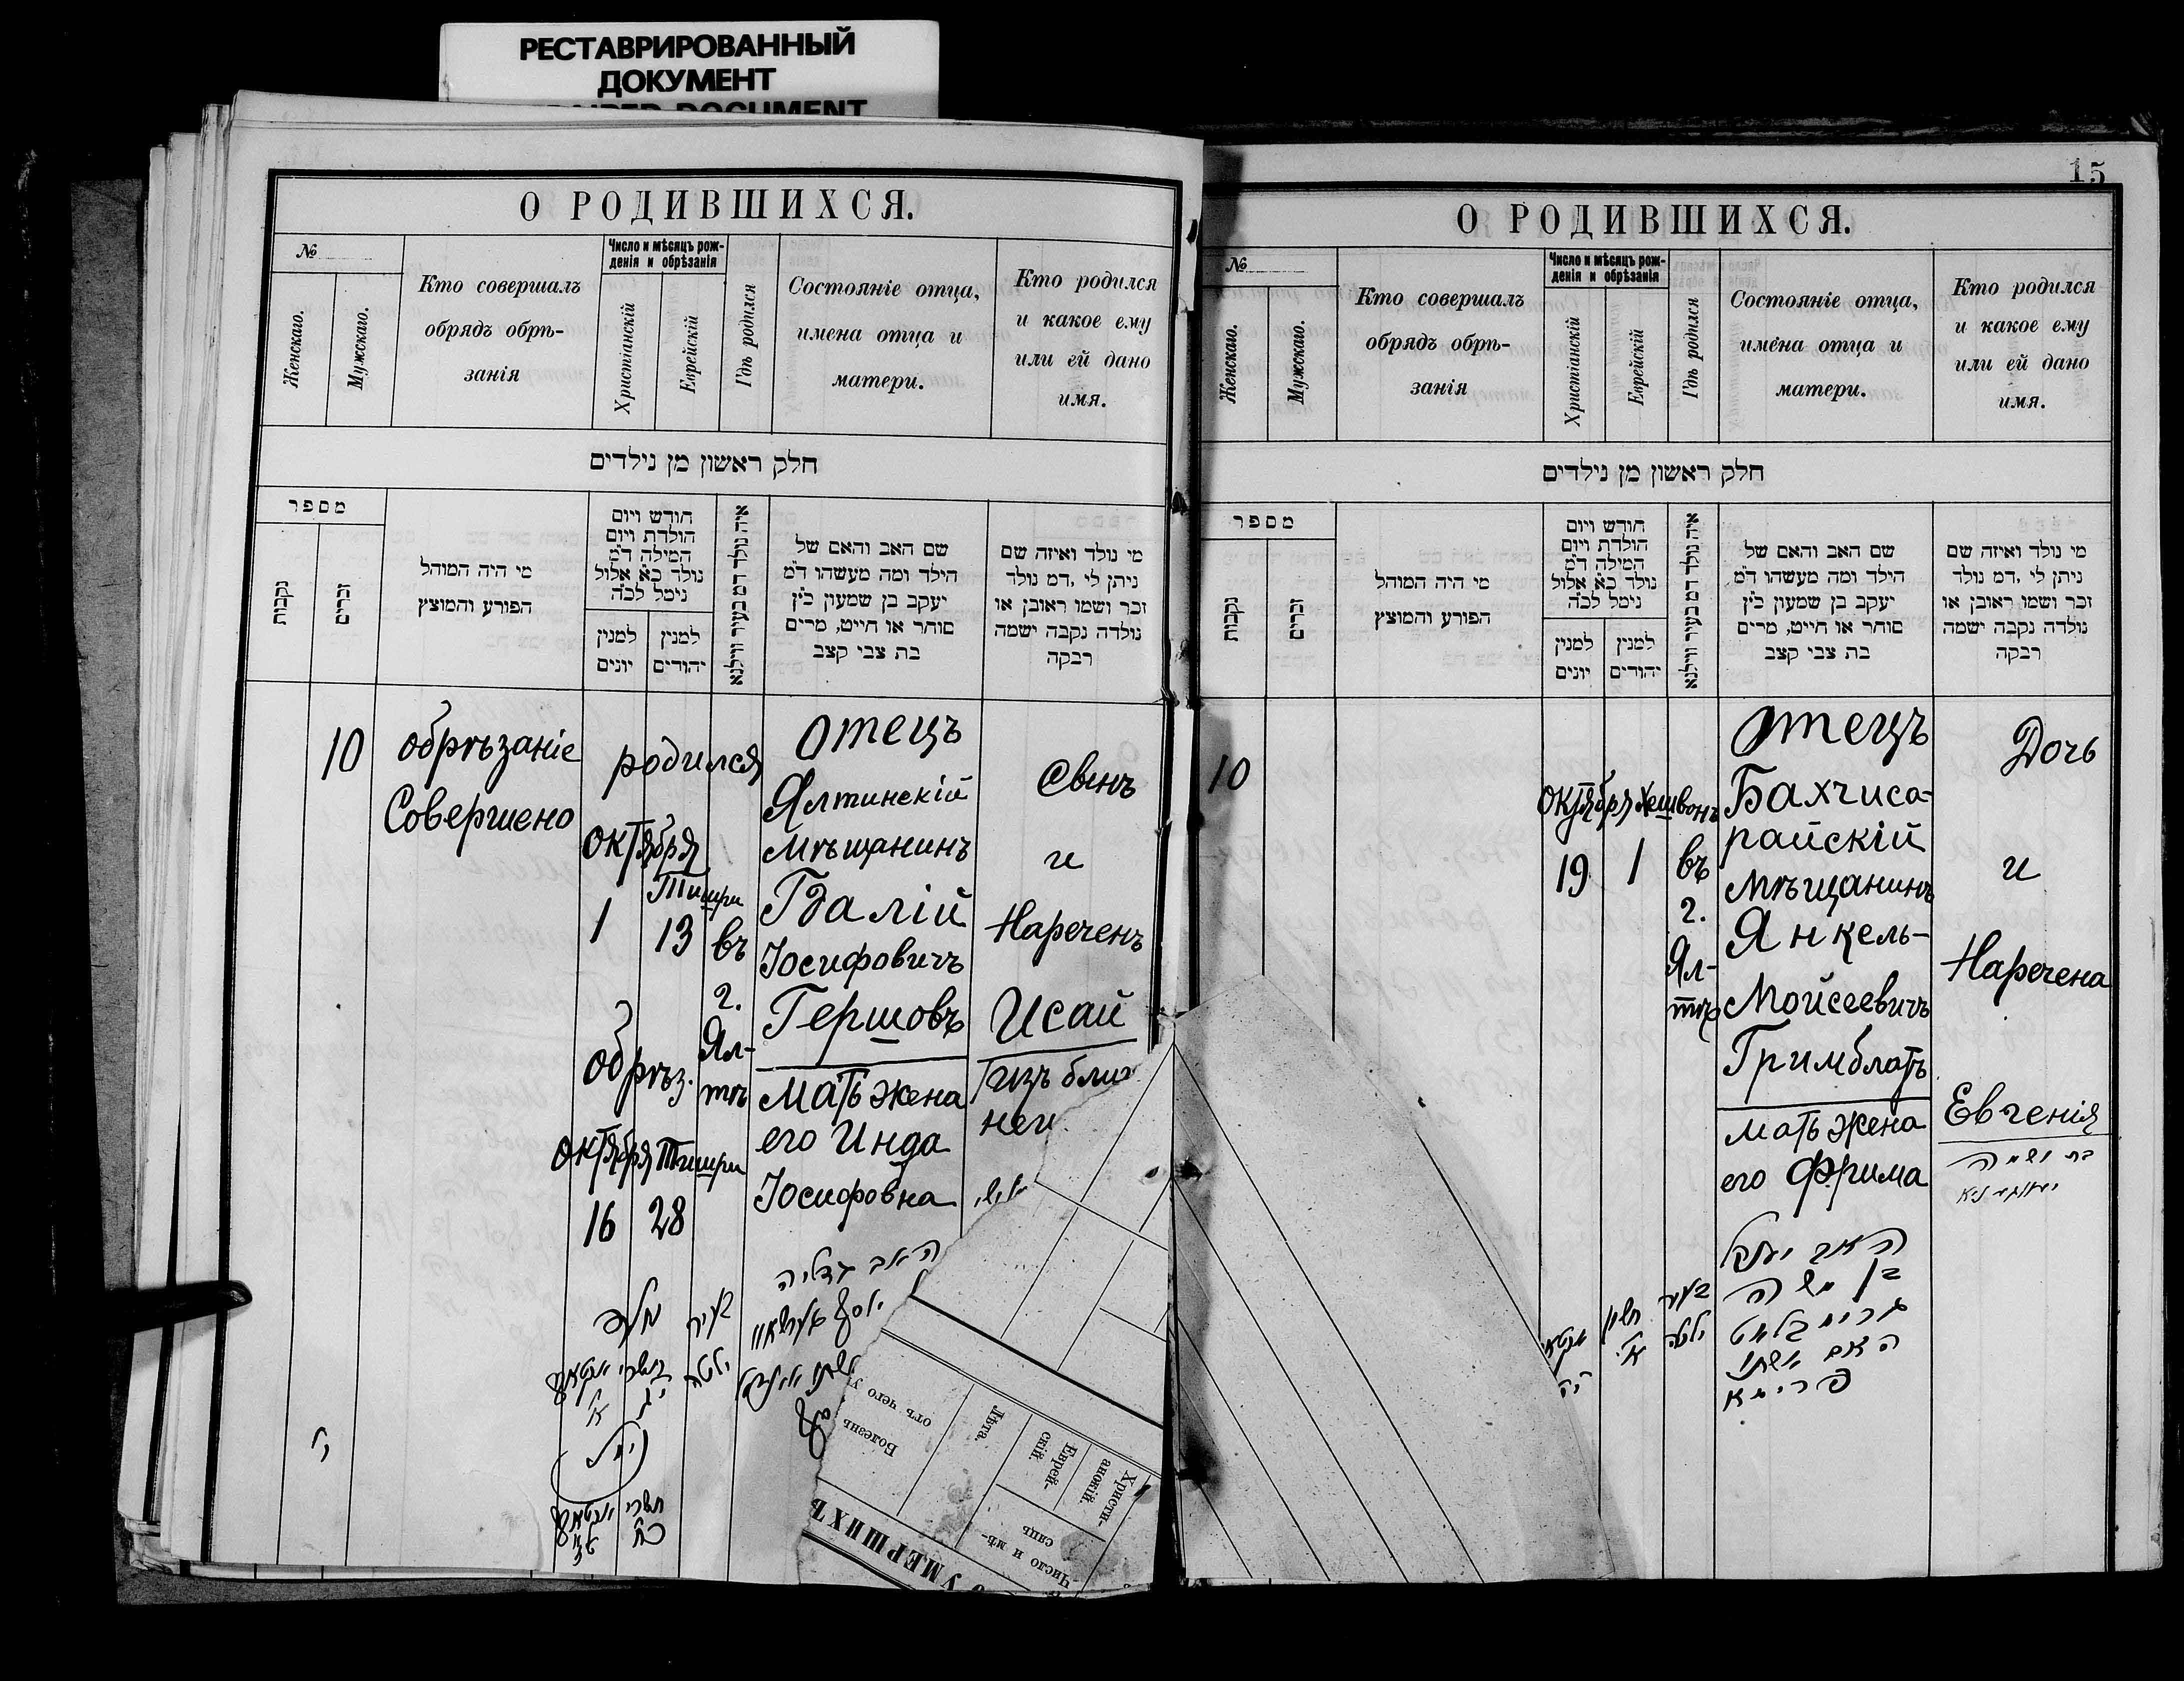 РЕСТАВРИРОВАННЫЙ
ДОКУМЕНТ
О РОДИВШИХСЯ.
№
Женскаго.
Мужскаго.
Кто совершалъ
обрядъ обрѣ-
занія
Число и мѣсяцъ рож-
денія и обрѣзанія
Христіанскій
Еврейскій
Гдѣ родился
Состояніе отца,
имена отца и
матери.
Кто родился
и какое ему
или ей дано
имя.
חלק ראשון מן נילדים
מספר
נקבות
זכרים
מי היה המוהל
הפורע והמוצץ
חודש ויום
הולדת ויום
המילה ד״מ
נולד כ״א אלול
נימל לכ״ה
למנין
יונים
למנין
יהודים
איה נולד דמ בעיר ווילנא
שם האב והאם של
הילד ומה מעשהו ד״מ
יעקב בן שמעון כ״ץ
סוחר או חייט, מרים
בת צבי קצב
מי נולד ואיזה שם
ניתן לי, דמ נולד
זכר ושמו ראובן או
נולדה נקבה ישמה
רבקה
10
обрѣзаніе
Совершено
родился
октября
Тишри
1
13
въ
г.
Ял-
тѣ
обрѣз.
октября Тишри
16
28
отецъ
Ялтинскій
мѣщанинъ
Гдалій
Іосифовичъ
Гершовъ
мать жена
его Инда
Іосифовна
Сынъ
и
Нареченъ
Исай
האב גדליה
בעיר
ילטה
О УМЕРШИХЪ
Число и мѣ-
сяцъ
Христи-
анскій.
Еврей-
скій.
Лѣта.
Болезнь
отъ чего
15
О РОДИВШИХСЯ.
№
Женскаго.
Мужскаго.
Кто совершалъ
обрядъ обрѣ-
занія
Число и мѣсяцъ рож-
денія и обрѣзанія
Христіанскій
Еврейскій
Гдѣ родился
Состояніе отца,
имена отца и
матери.
Кто родился
и какое ему
или ей дано
имя.
חלק ראשון מן נילדים
מספר
נקבות
זכרים
מי היה המוהל
הפורע והמוצץ
חודש ויום
הולדת ויום
המילה ד״מ
נולד כ״א אלול
נימל לכ״ה
למנין
יונים
למנין
יהודים
איה נולד דמ בעיר ווילנא
שם האב והאם של
הילד ומה מעשהו ד״מ
יעקב בן שמעון כ״ץ
סוחר או חייט, מרים
בת צבי קצב
מי נולד ואיזה שם
ניתן לי, דמ נולד
זכר ושמו ראובן או
נולדה נקבה ישמה
רבקה
10
октября Хешвонъ
19
1
въ
г.
Ял-
тѣ
отецъ
Бахчиса-
райскій
мѣщанинъ
Янкель-
Мойсеевичъ
Гримблатъ
мать жена
его Фрима
Дочь
и
Наречена
Евгенія
בת ושמה
האב יעקב
בן משה
גרימבלאט
האם אשתו
פרימא
חשון
א׳
בעיר
ילטה